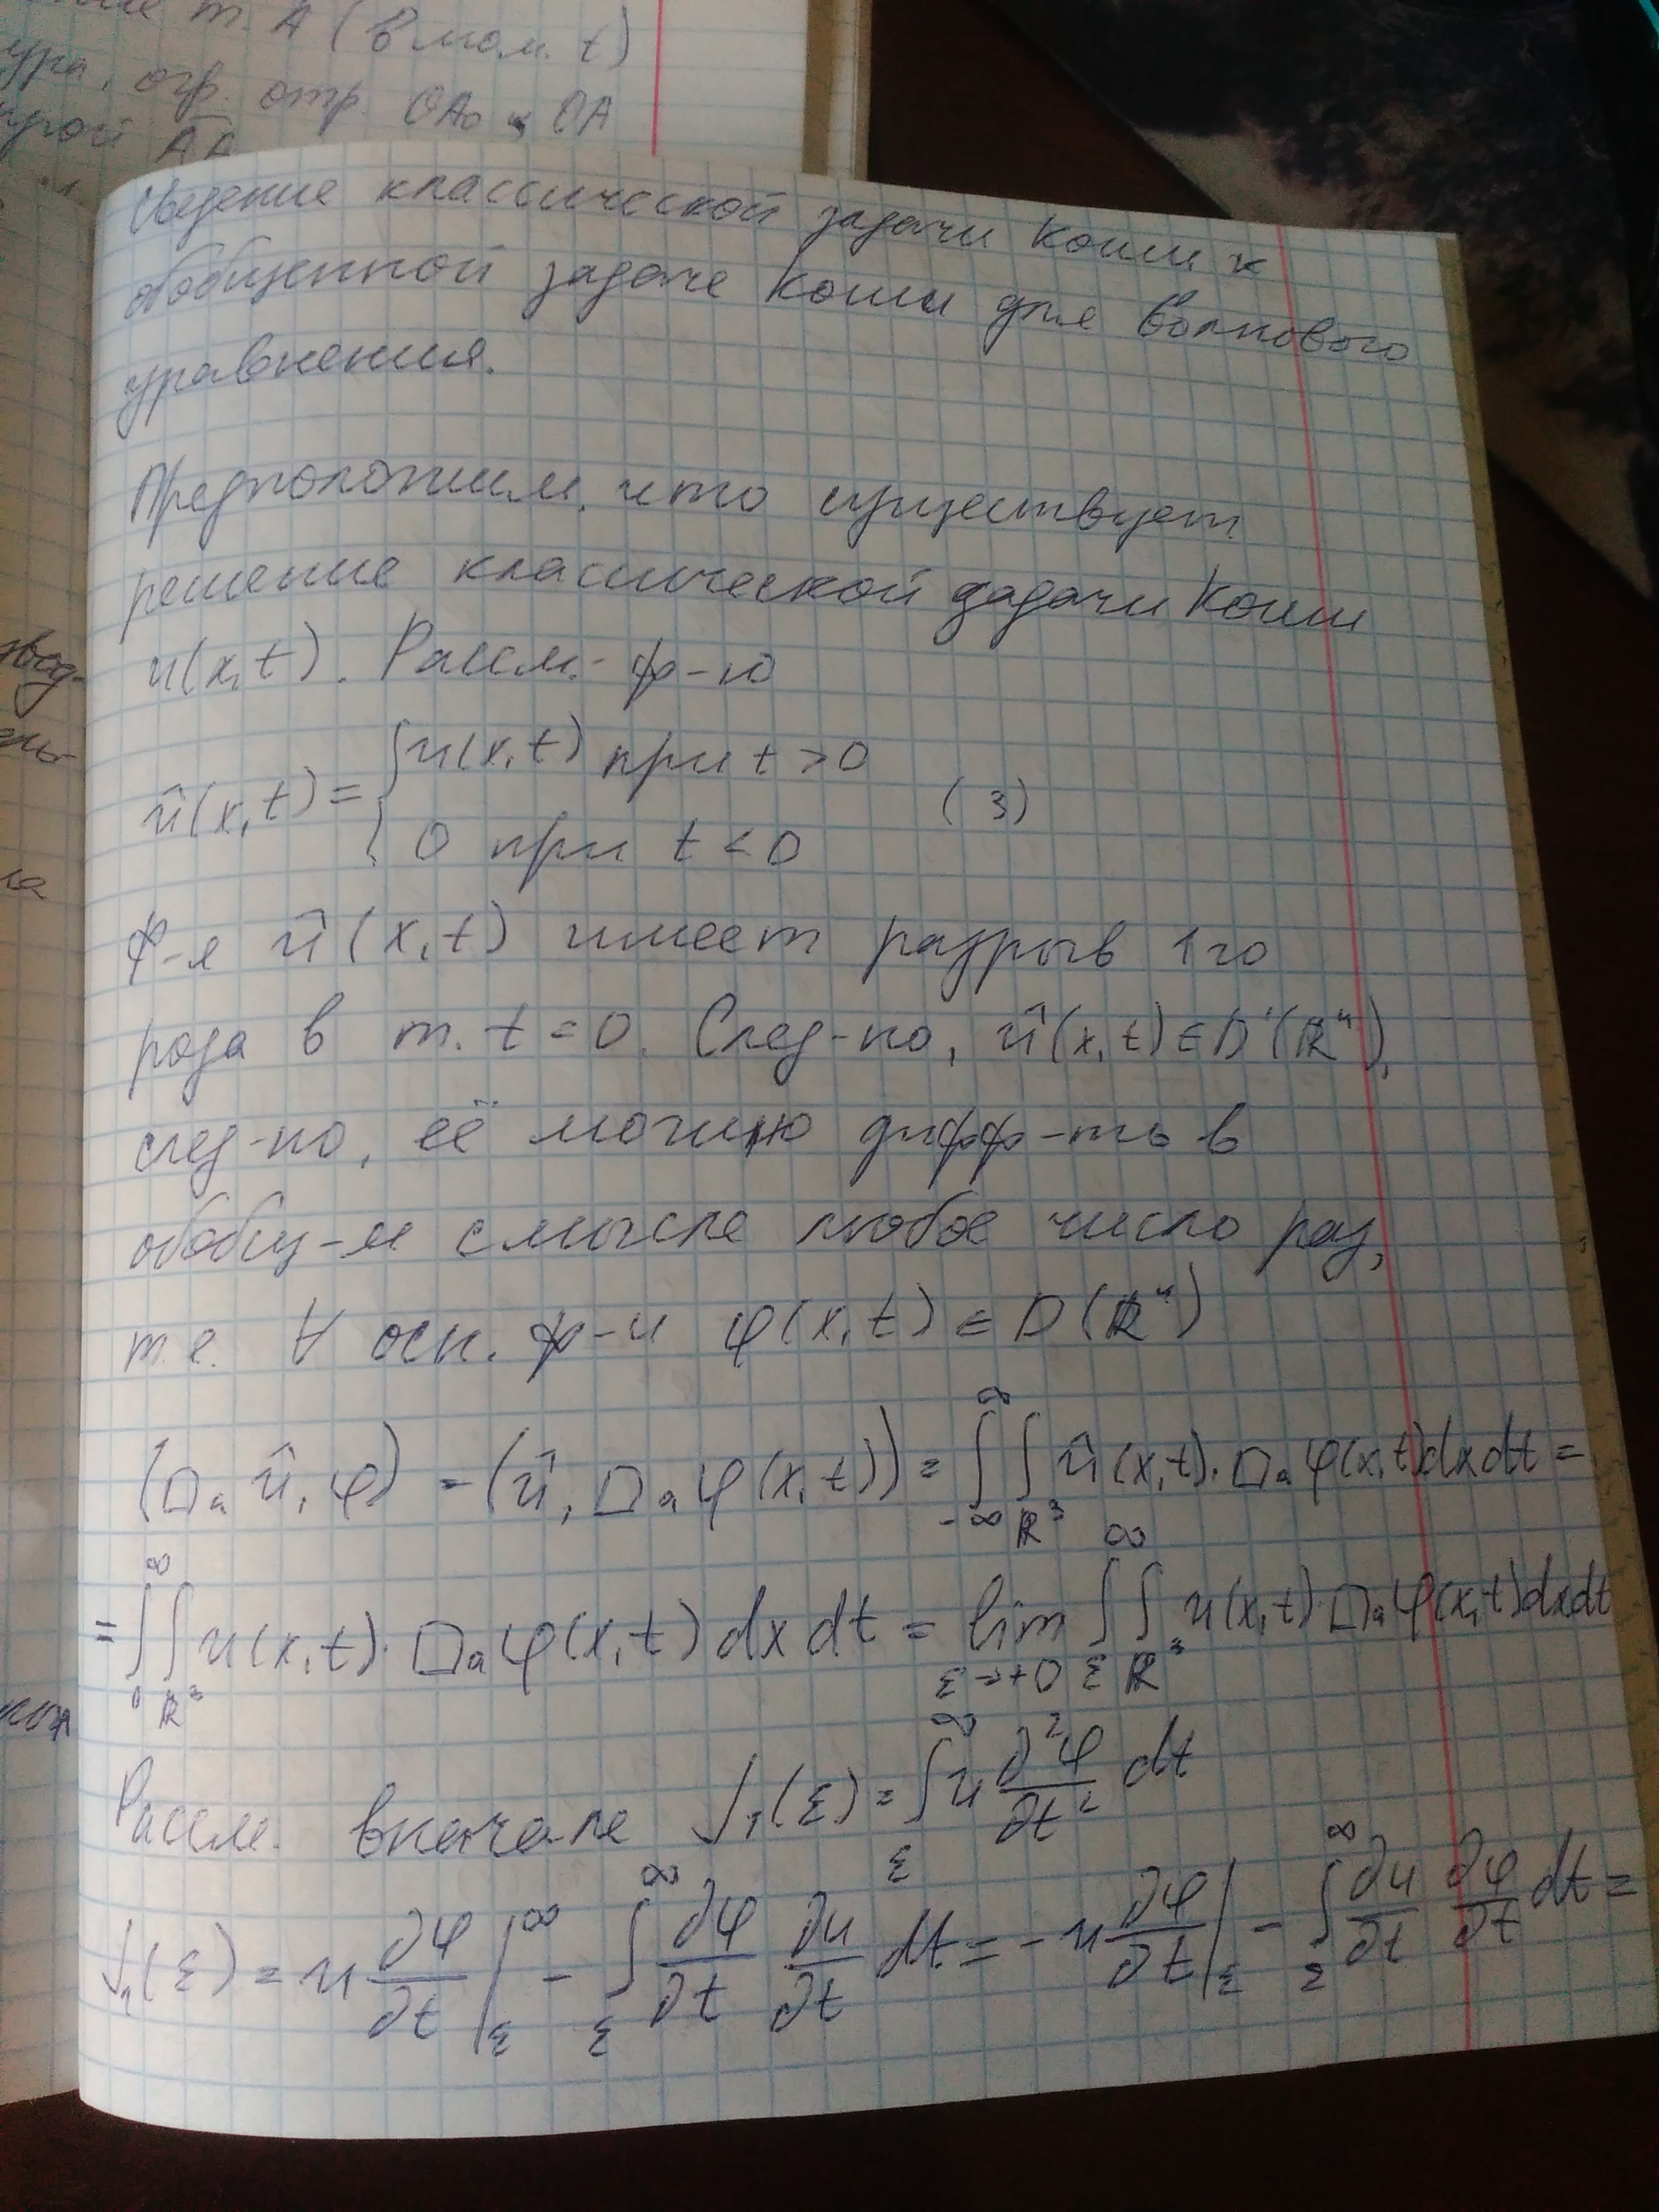 т. А (в мом. t)
огр. отр. OA₀ и OA
Сведение классической задачи Коши к
обобщенной задаче Коши для волнового
уравнения.
Предположим, что существует
решение классической задачи Коши
u(x,t). Рассм. ф-ю
û(x,t) = { u(x,t) при t > 0
0 при t < 0 (3)
Ф-я û(x,t) имеет разрыв 1го
рода в т. t = 0. След-но, û(x,t) ∈ D'(ℝ⁴),
след-но, её можно дифф-ть в
обобщ-м смысле любое число раз,
т.е. ∀ осн. ф-и φ(x,t) ∈ D(ℝ⁴)
(□ₐ û, φ) = (û, □ₐ φ(x,t)) = ∫_{-∞}^{∞} ∫_{ℝ³} û(x,t)·□ₐ φ(x,t) dx dt =
= ∫_0^∞ ∫_{ℝ³} u(x,t)·□ₐ φ(x,t) dx dt = lim_{ε→+0} ∫_ε^∞ ∫_{ℝ³} u(x,t)·□ₐ φ(x,t) dx dt
Рассм. вначале J₁(ε) = ∫_ε^∞ u ∂²φ/∂t² dt
J₁(ε) = u ∂φ/∂t |_ε^∞ − ∫_ε^∞ ∂φ/∂t ∂u/∂t dt = −u ∂φ/∂t |_ε − ∫_ε^∞ ∂u/∂t ∂φ/∂t dt =